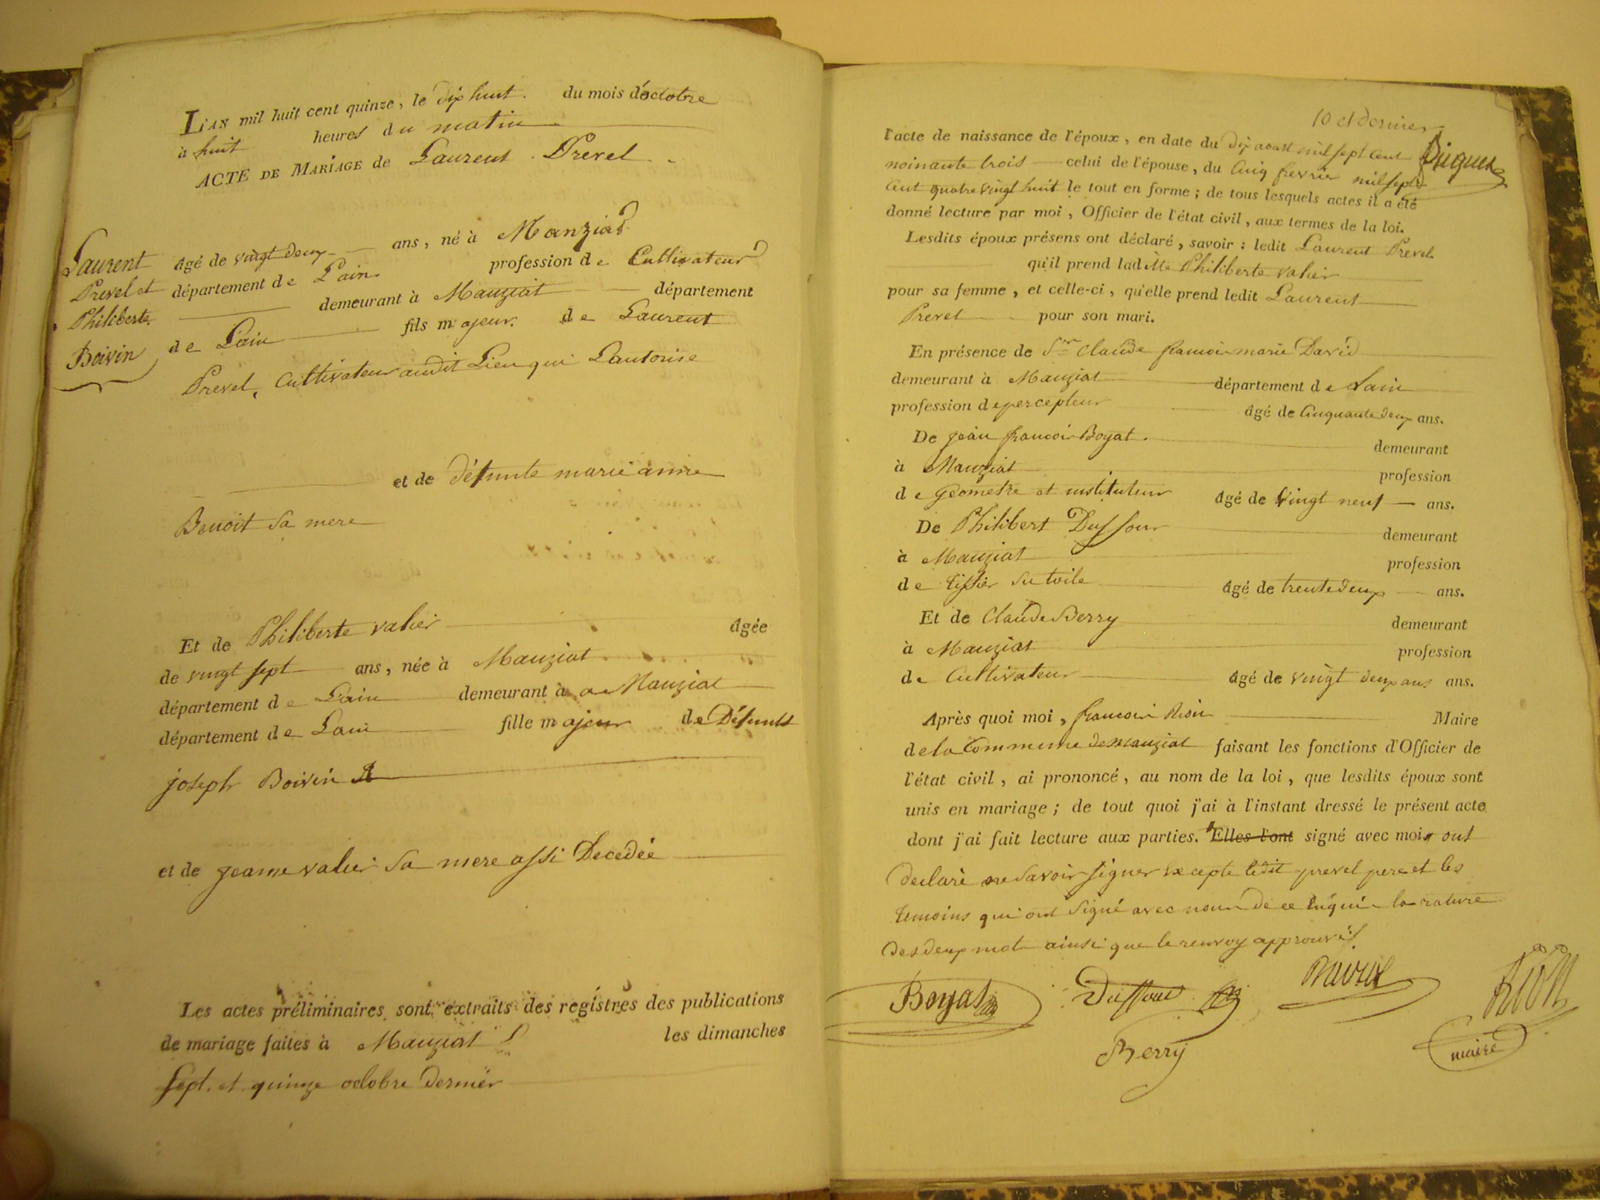 L'AN mil huit cent quinze, le dix huit. du mois doctobre
à huit heures du matin
ACTE DE MARIAGE de Laurent Prevel
Laurent
Prevel et
Philiberte
Boivin
âgé de vingt deux ans, né à Manziat
département de Lain profession de Cultivateur
demeurant à Manziat département
de Lain fils majeur de Laurent
Prevel, Cultivateur audit Lieu qui Lautorise
et de défunte marie anne
Benoit sa mere
Et de Philiberte valier âgée
de vingt sept ans, née à Manziat
département de Lain demeurant à Manziat
département de Lain fille majeur de Défunt
joseph Boivin
et de jeanne valier sa mere assi Decedée
Les actes préliminaires sont extraits des registres des publications
de mariage faites à Manziat les dimanches
sept. et quinze octobre dernier
10 et dernier
l'acte de naissance de l'époux, en date du dix aoust mil sept cent
noinante trois celui de l'épouse, du Cinq fevrier mil sept
Cent quatre vingt huit le tout en forme; de tous lesquels actes il a été
donné lecture par moi, Officier de l'état civil, aux termes de la loi.
Lesdits époux présens ont déclaré, savoir: ledit Laurent Prevel
qu'il prend ladite Philiberte valier
pour sa femme, et celle-ci, qu'elle prend ledit Laurent
Prevel pour son mari.
En présence de Sr Claude francois marie David
demeurant à Manziat département de Lain
profession de percepteur âgé de Cinquante deux ans.
De jean francois Boyat. demeurant
à Manziat profession
de geometre et instituteur âgé de vingt neuf ans.
De Philibert Duffour demeurant
à Manziat profession
de tissier en toile âgé de trente deux ans.
Et de Claude Berry demeurant
à Manziat profession
de Cultivateur âgé de vingt deux ans ans.
Après quoi moi, francois Rion Maire
de la Commune de manziat faisant les fonctions d'Officier de
l'état civil, ai prononcé, au nom de la loi, que lesdits époux sont
unis en mariage; de tout quoi j'ai à l'instant dressé le présent acte
dont j'ai fait lecture aux parties. Elles l'ont signé avec moi ont
declaré ne savoir signer excepte ledit prevel pere et les
temoins qui ont signé avec nous de ce enquis la rature
des deux mots ainsi que le renvoy approuvés.
Boyat
Duffour
David
Rion
maire
Berry